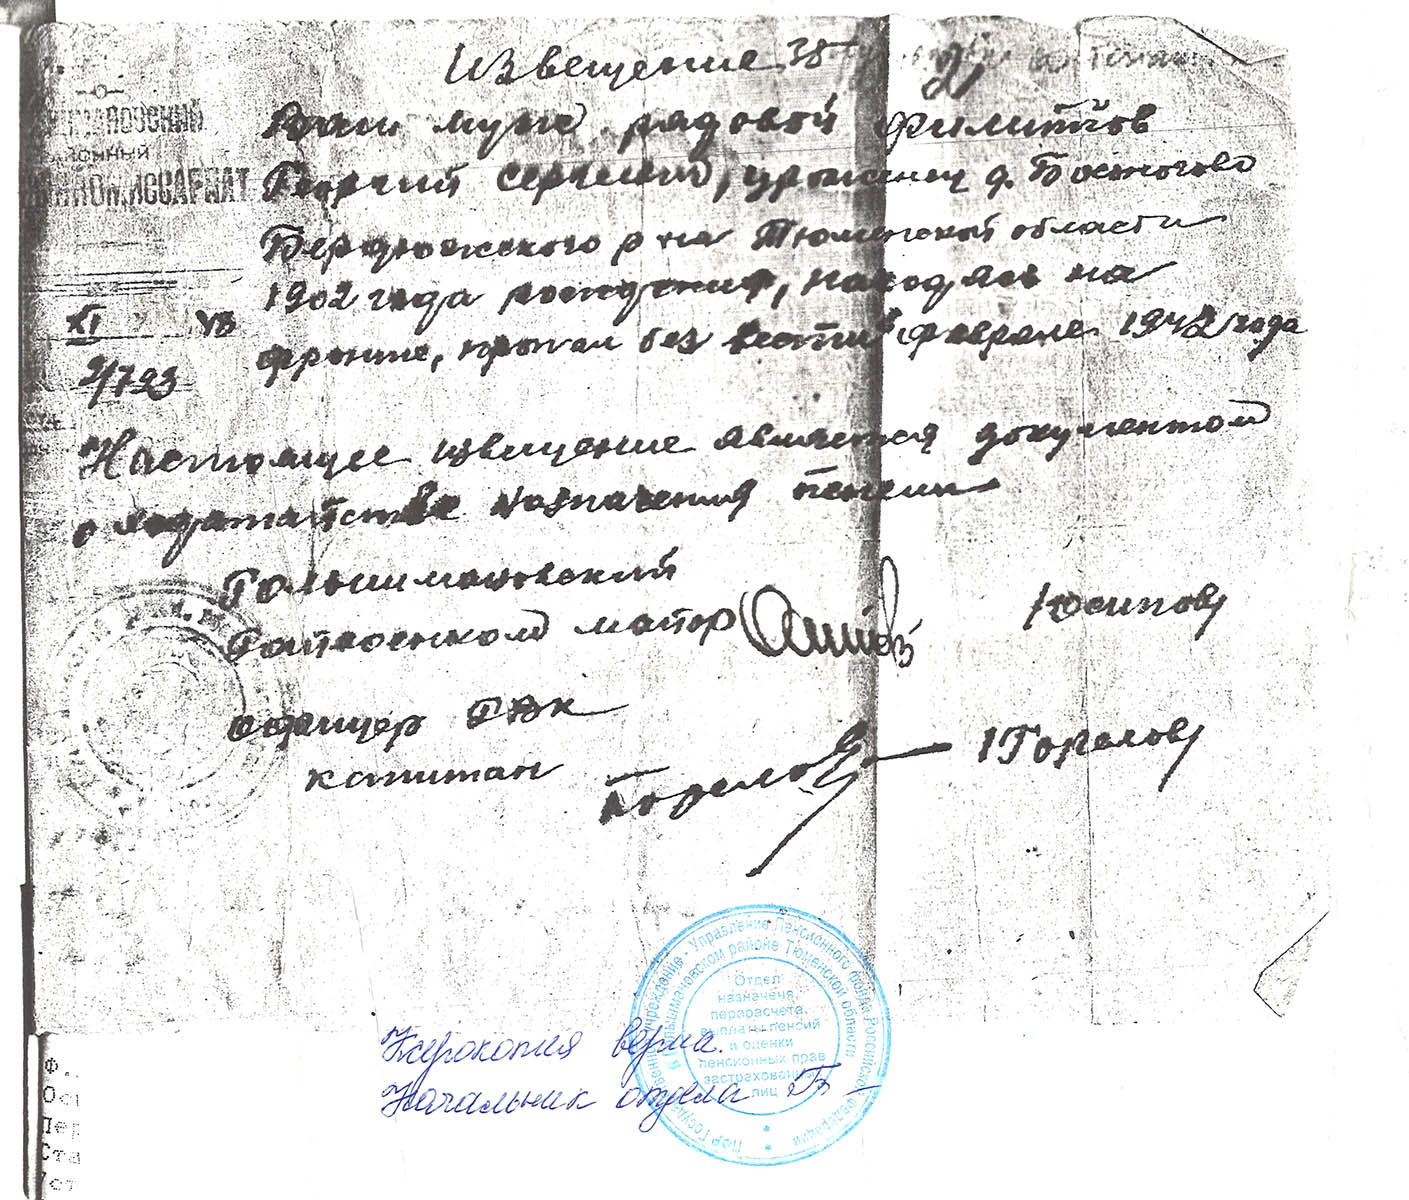 Извещение 38
Ваш муж рядовой Филиппов
Георгий Сергеевич, уроженец д.
Бердюжского р-на Тюменской области
1902 года рождения, находясь на
фронте, пропал без вести в феврале 1942 года
РАЙОННЫЙ
ВОЕННЫЙ КОМИССАРИАТ
XI
2/793
Настоящее извещение является документом
о ходатайстве назначения пенсии
Голышмановский
Райвоенком майор /Юсупов/
офицер РВК
капитан Горелов /Горелов/
Ксерокопия верна.
Начальник отдела
ПФР Государственное учреждение - Управление Пенсионного фонда Российской Федерации
в Голышмановском районе Тюменской области
Отдел
назначения,
перерасчета,
выплаты пенсий
и оценки
пенсионных прав
застрахованных
лиц
Ф.
Ост
Пер
Ста